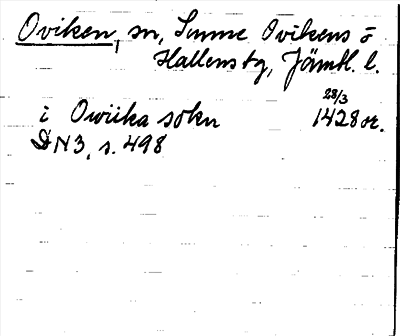 Oviken, sn, Sunne Ovikens o
Hallens tg, Jämtl. l.
28/3
i Owiika sokn 1428 or.
DN3, s. 498